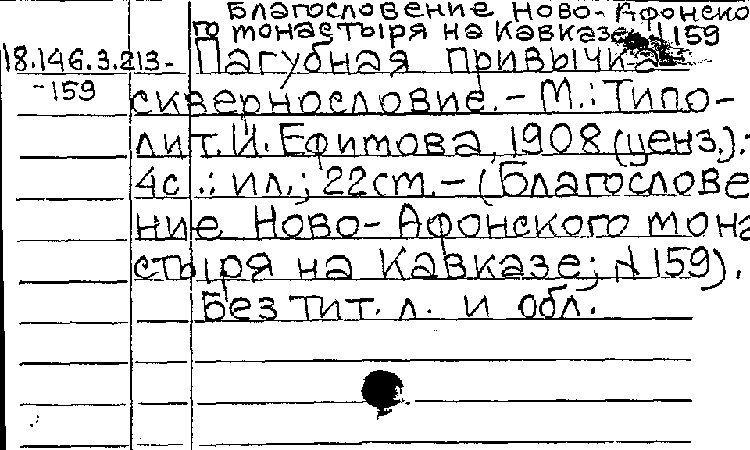 Благословение Ново-Афонско
го монастыря на Кавказе, № 159
18.146.3.213-
-159
Пагубная привычка
сквернословие. – М.: Типо-
лит. И. Ефимова, 1908 (ценз.).-
4с.: ил.; 22см. – (Благослове
ние Ново-Афонского мона
стыря на Кавказе; № 159).
Без тит. л. и обл.